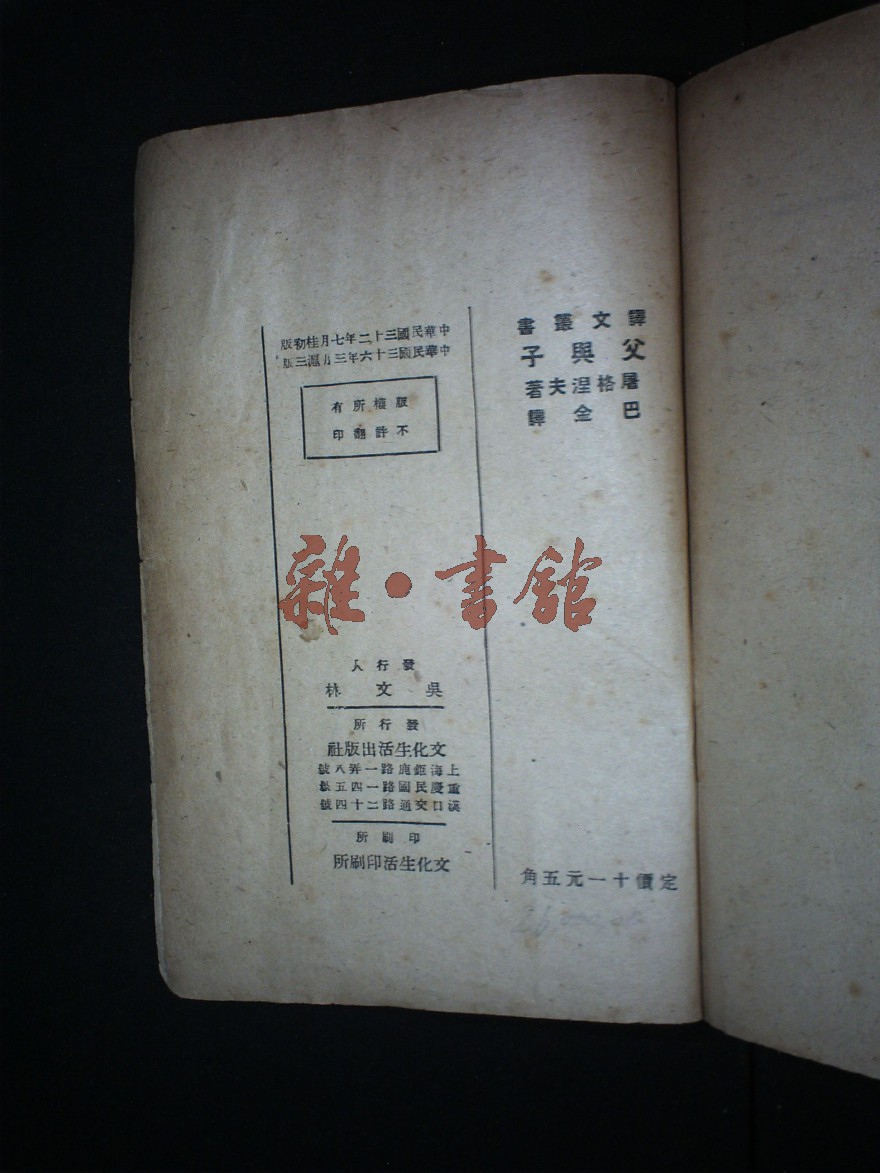 譯文叢書
父與子
屠格涅夫著
巴金譯
定價十一元五角
中華民國三十二年七月桂初版
中華民國三十六年三月滬三版
版權所有
不許翻印
發行人
吳文林
發行所
文化生活出版社
上海鉅鹿路一弄八號
重慶民國路一四五號
漢口交通路二十四號
印刷所
文化生活印刷所
雜·書館